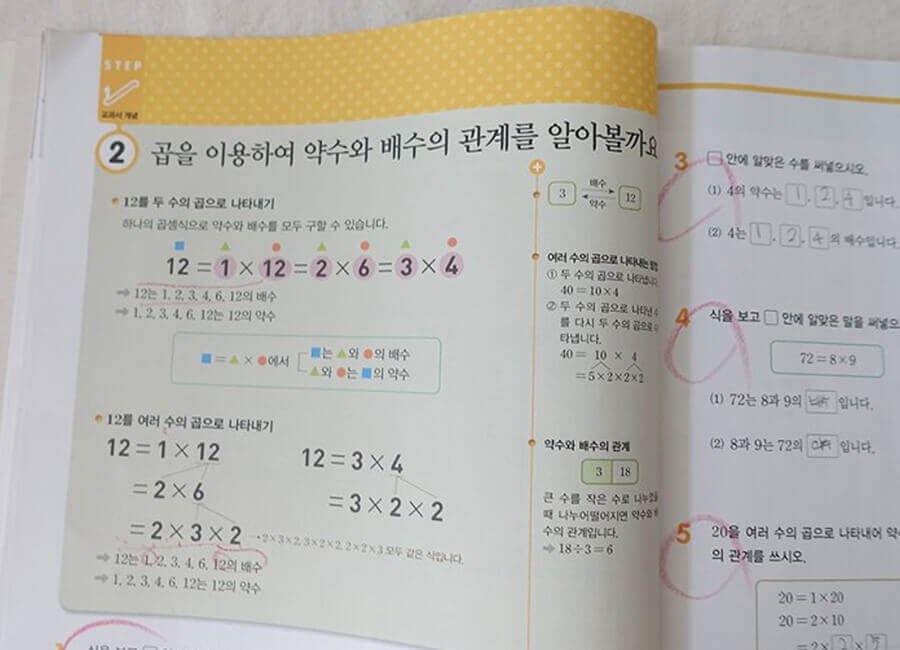 STEP
1
교과서 개념
2 곱을 이용하여 약수와 배수의 관계를 알아볼까요
12를 두 수의 곱으로 나타내기
하나의 곱셈식으로 약수와 배수를 모두 구할 수 있습니다.
12 = 1 × 12 = 2 × 6 = 3 × 4
➡ 12는 1, 2, 3, 4, 6, 12의 배수
➡ 1, 2, 3, 4, 6, 12는 12의 약수
■ = ▲ × ●에서
■는 ▲와 ●의 배수
▲와 ●는 ■의 약수
12를 여러 수의 곱으로 나타내기
12 = 1 × 12
= 2 × 6
= 2 × 3 × 2
12 = 3 × 4
= 3 × 2 × 2
2×3×2, 3×2×2, 2×2×3 모두 같은 식입니다.
➡ 12는 1, 2, 3, 4, 6, 12의 배수
➡ 1, 2, 3, 4, 6, 12는 12의 약수
3 배수 12
약수
여러 수의 곱으로 나타내는
① 두 수의 곱으로 나타냅니다
40 = 10×4
② 두 수의 곱으로 나타낸
를 다시 두 수의 곱으로
타냅니다.
40 = 10 × 4
= 5×2×2×2
약수와 배수의 관계
3 18
큰 수를 작은 수로 나누었을
때 나누어떨어지면 약수와
수의 관계입니다.
➡ 18÷3=6
3 □ 안에 알맞은 수를 써넣으시오.
(1) 4의 약수는 1, 2, 4 입니다.
(2) 4는 1, 2, 4 의 배수입니다.
4 식을 보고 □ 안에 알맞은 말을 써넣으
72 = 8×9
(1) 72는 8과 9의 입니다.
(2) 8과 9는 72의 입니다.
5 20을 여러 수의 곱으로 나타내어
의 관계를 쓰시오.
20 = 1×20
20 = 2×10
= 2× 2 ×
식을 보고